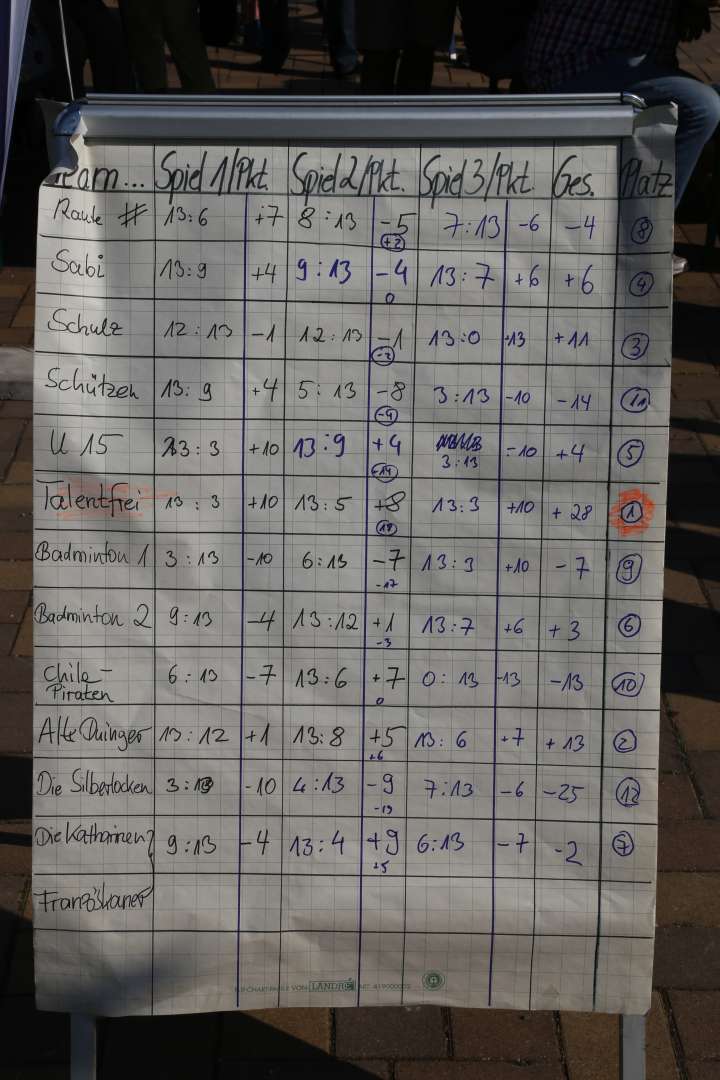 Team... Spiel 1/Pkt. Spiel 2/Pkt. Spiel 3/Pkt. Ges. Platz
Raute # 13:6 +7 8:13 -5 7:13 -6 -4 8
+2
Sabi 13:9 +4 9:13 -4 13:7 +6 +6 4
0
Schulz 12:13 -1 12:13 -1 13:0 +13 +11 3
-2
Schützen 13:9 +4 5:13 -8 3:13 -10 -14 11
-4
U 15 13:3 +10 13:9 +4 3:13 -10 +4 5
+14
Talentfrei 13:3 +10 13:5 +8 13:3 +10 +28 1
18
Badminton 1 3:13 -10 6:13 -7 13:3 +10 -7 9
-17
Badminton 2 9:13 -4 13:12 +1 13:7 +6 +3 6
-3
Chile-
Piraten 6:13 -7 13:6 +7 0:13 -13 -13 10
0
Alte Duinger 13:12 +1 13:8 +5 13:6 +7 +13 2
+6
Die Silberlocken 3:13 -10 4:13 -9 7:13 -6 -25 12
-19
Die Katharinen? 9:13 -4 13:4 +9 6:13 -7 -2 7
+5
Franziskaner
FLIPCHARTPAPIER VON LANDRÉ